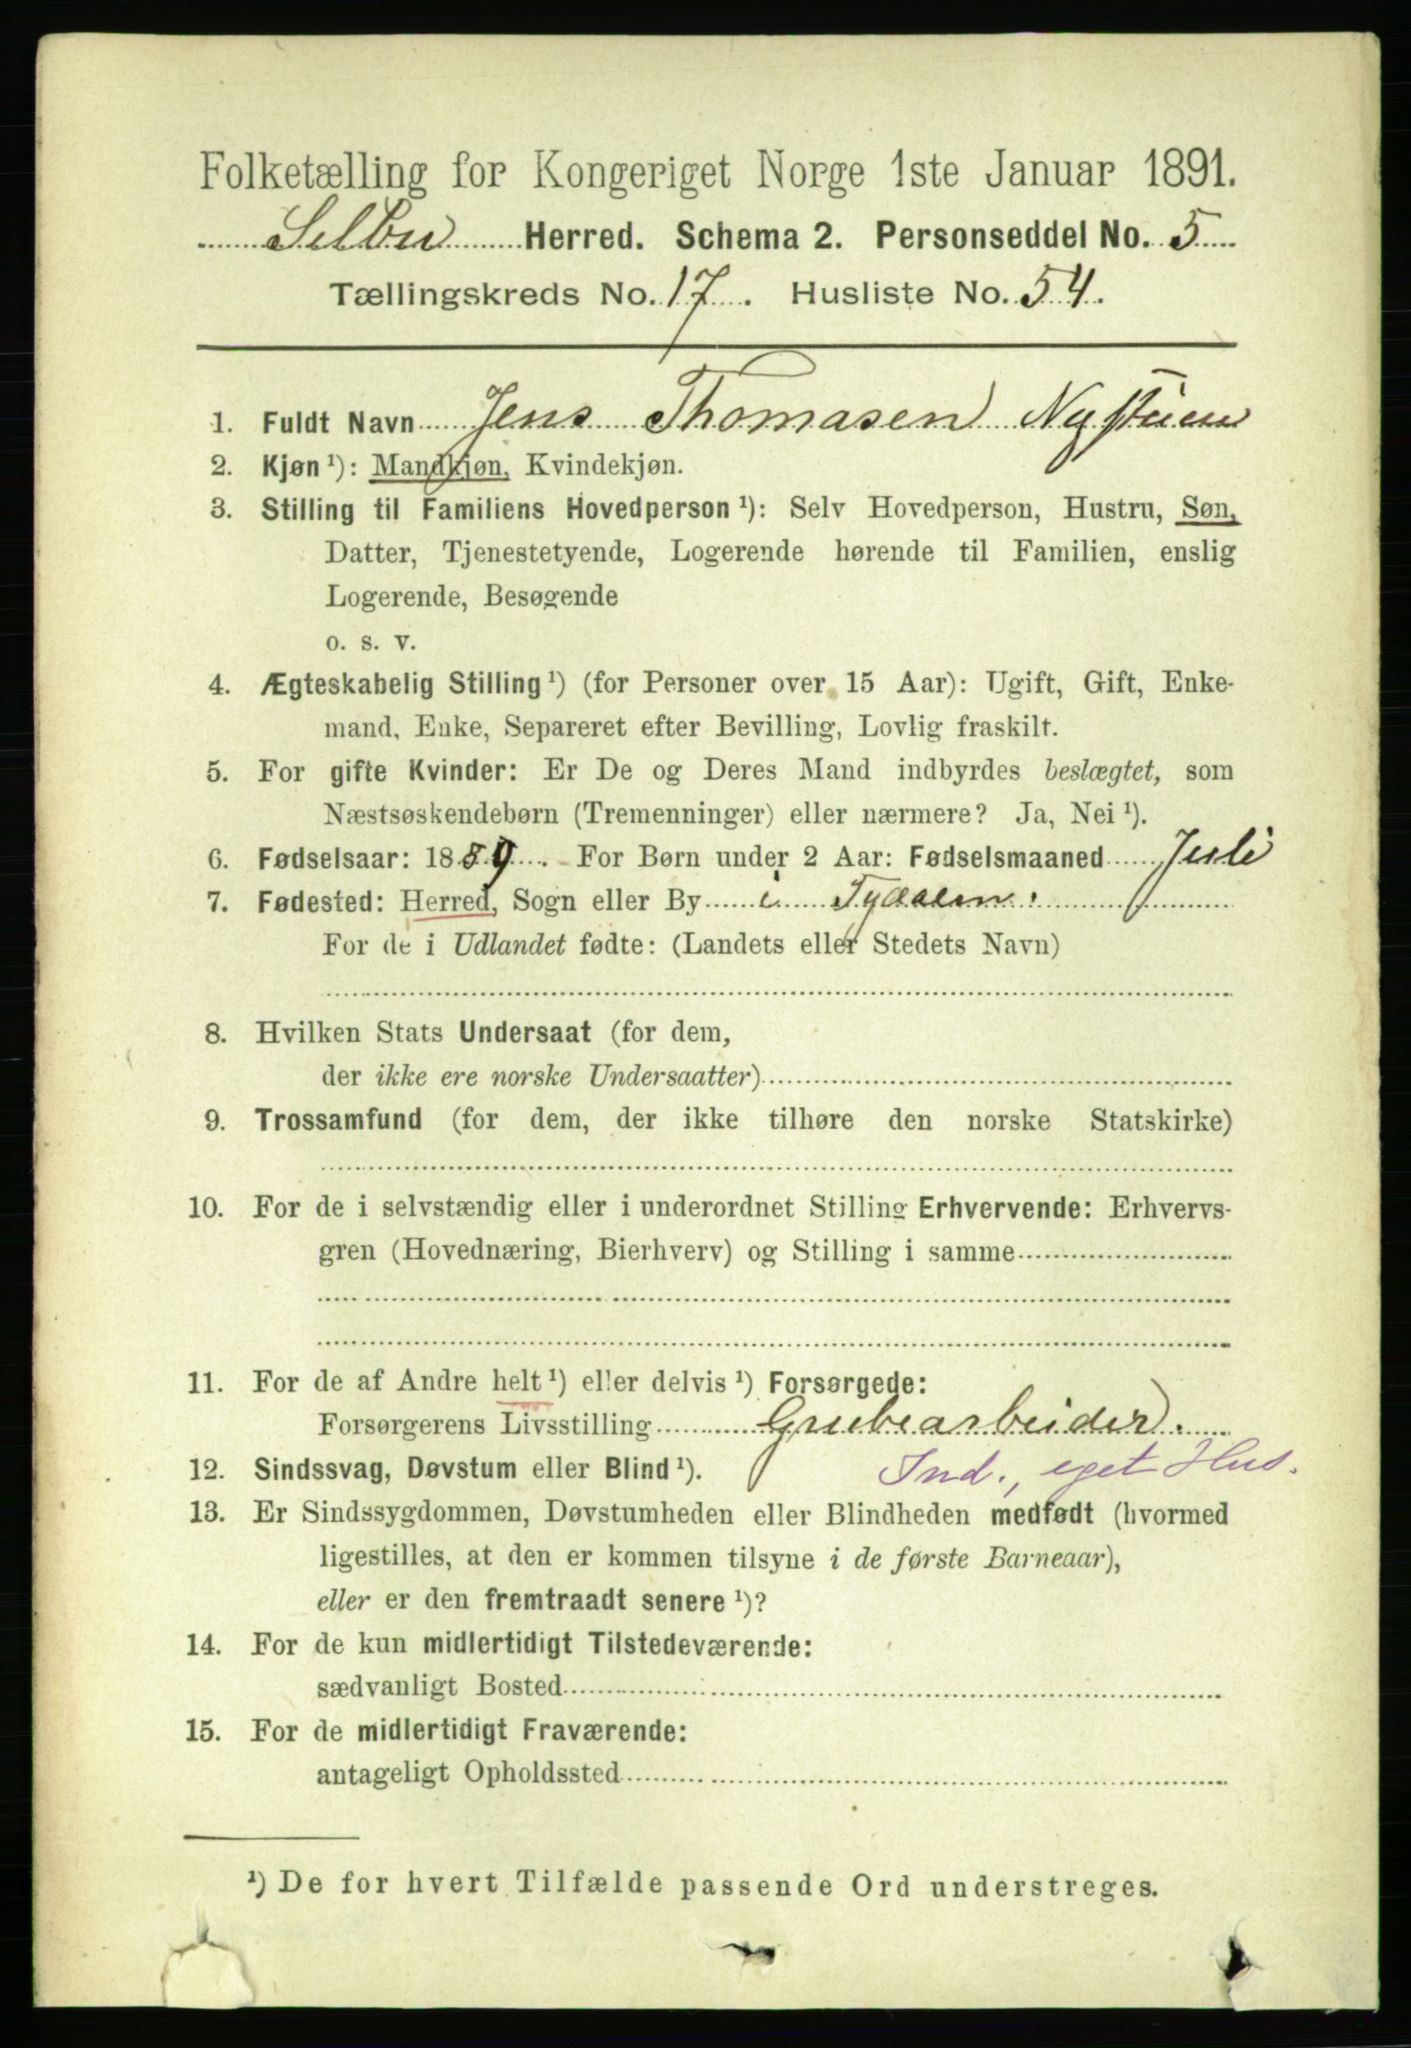 Folketælling for Kongeriget Norge 1ste Januar 1891.
Selbu Herred. Schema 2. Personseddel No. 5
Tællingskreds No. 17. Husliste No. 54.
1. Fuldt Navn Jens Thomasen Nystuen
2. Kjøn ¹): Mandkjøn, Kvindekjøn.
3. Stilling til Familiens Hovedperson ¹): Selv Hovedperson, Hustru, Søn,
Datter, Tjenestetyende, Logerende hørende til Familien, enslig
Logerende, Besøgende
o. s. v.
4. Ægteskabelig Stilling ¹) (for Personer over 15 Aar): Ugift, Gift, Enke-
mand, Enke, Separeret efter Bevilling, Lovlig fraskilt.
5. For gifte Kvinder: Er De og Deres Mand indbyrdes beslægtet, som
Næstsøskendebørn (Tremenninger) eller nærmere? Ja, Nei ¹).
6. Fødselsaar: 1889. For Børn under 2 Aar: Fødselsmaaned Juli
7. Fødested: Herred, Sogn eller By i Tydalen.
For de i Udlandet fødte: (Landets eller Stedets Navn)
8. Hvilken Stats Undersaat (for dem,
der ikke ere norske Undersaatter)
9. Trossamfund (for dem, der ikke tilhøre den norske Statskirke)
10. For de i selvstændig eller i underordnet Stilling Erhvervende: Erhvervs-
gren (Hovednæring, Bierhverv) og Stilling i samme
11. For de af Andre helt ¹) eller delvis ¹) Forsørgede:
Forsørgerens Livsstilling Grubearbeider.
12. Sindssvag, Døvstum eller Blind ¹). Ind., eget Hus.
13. Er Sindssygdommen, Døvstumheden eller Blindheden medfødt (hvormed
ligestilles, at den er kommen tilsyne i de første Barneaar),
eller er den fremtraadt senere ¹)?
14. For de kun midlertidigt Tilstedeværende:
sædvanligt Bosted
15. For de midlertidigt Fraværende:
antageligt Opholdssted
¹) De for hvert Tilfælde passende Ord understreges.